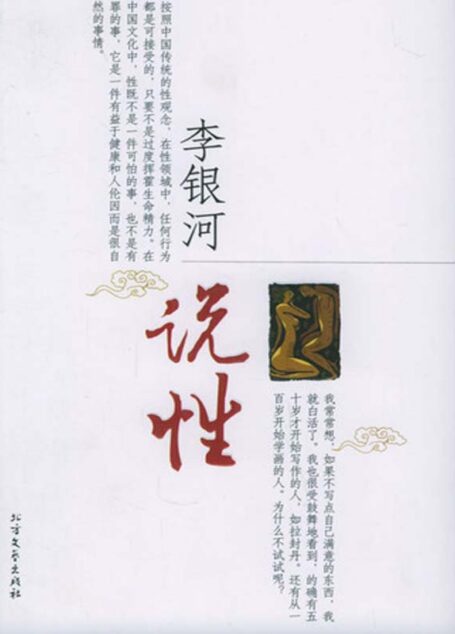 李银河
说性
按照中国传统的性观念，在性领域中，任何行为
都是可接受的，只要不是过度挥霍生命精力。在
中国文化中，性既不是一件可怕的事，也不是有
罪的事，它是一件有益于健康和人伦因而是很自
然的事情。
我常常想，如果不写点自己满意的东西，我
就白活了。我也很受鼓舞地看到，的确有五
十岁才开始写作的人，如拉封丹。还有从一
百岁开始学画的人。为什么不试试呢？
北方文艺出版社